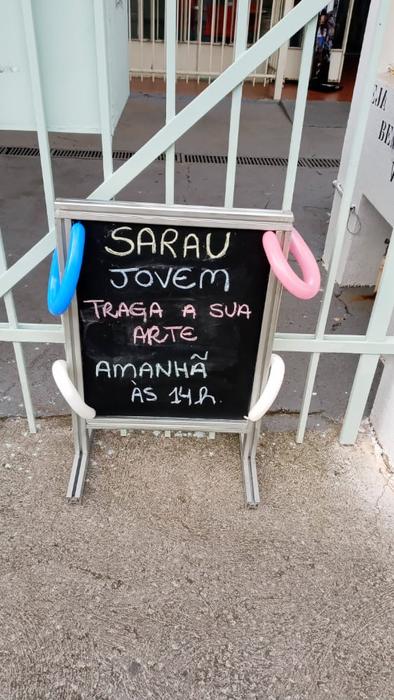 SARAU
JOVEM
TRAGA A SUA
ARTE
AMANHÃ
ÀS 14h.